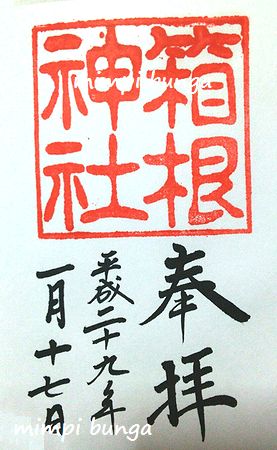 箱根
神社
奉拝
平成二十九年
一月十七日
mimpi bunga
mimpi bunga